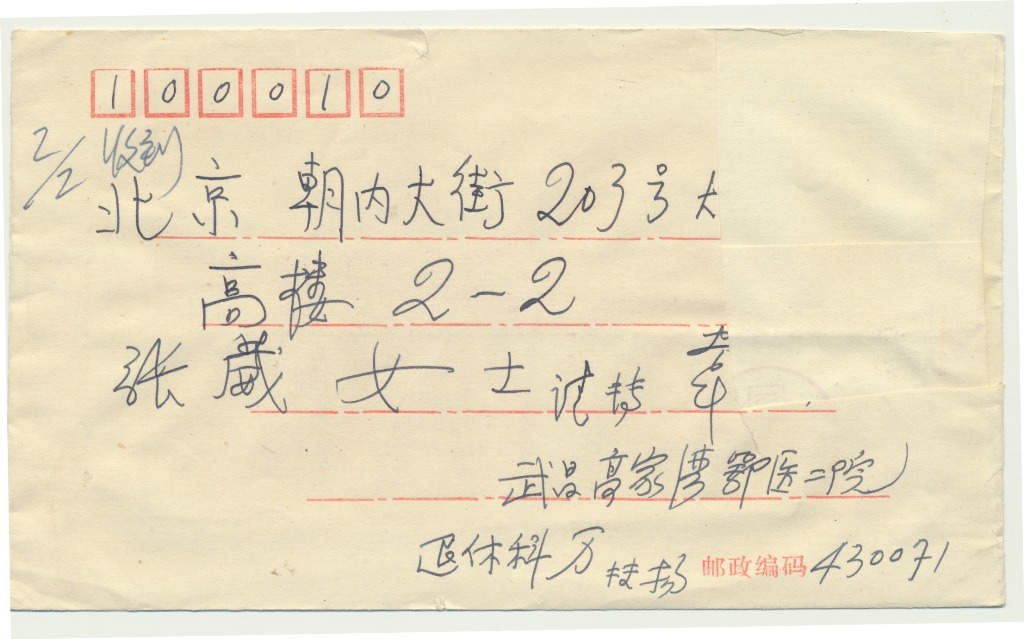 100010
2/2 收到
北京 朝内大街 203号大
高楼 2-2
张葳 女士 请转
武昌高家湾鄂医二院
退休科万扶扬 邮政编码 430071